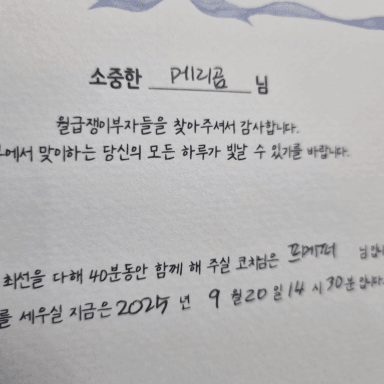 소중한 메리곰 님
월급쟁이부자들을 찾아주셔서 감사합니다.
에서 맞이하는 당신의 모든 하루가 빛날 수 있기를 바랍니다.
최선을 다해 40분동안 함께 해 주실 코치님은 프메퍼 님입니
를 세우실 지금은 2025 년 9 월 20 일 14 시 30 분 입니다.